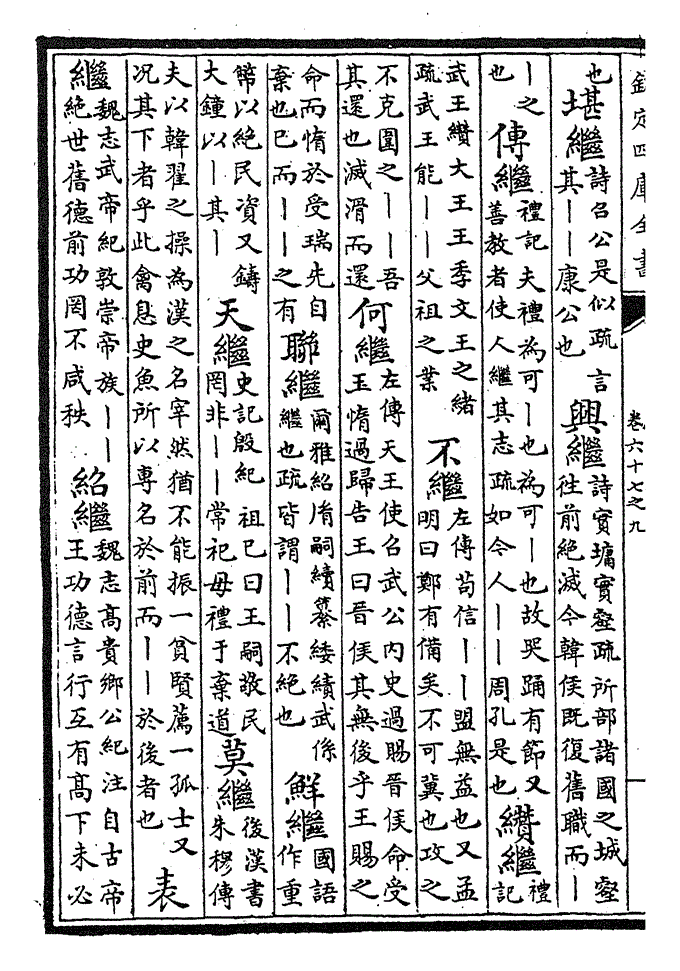 欽定四庫全書
卷六十七之九
也堪繼詩召公是似疏言其丨丨康公也興繼詩實墉實壑疏所部諸國之城壑往前絶滅今韓侯既復舊職而丨
丨之也傳繼禮記夫禮為可丨也為可丨也故哭踊有節又善教者使人繼其志疏如今人丨丨周孔是也纘繼禮記
武王纘大王王季文王之緒疏武王能丨丨父祖之業不繼左傳苟信丨丨盟無益也又孟明曰鄭有備矣不可冀也攻之
不克圍之丨丨吾其還也滅滑而還何繼左傳天王使召武公内史過賜晉侯命受玉惰過歸告王曰晉侯其無後乎王賜之
命而惰於受瑞先自棄也已而丨丨之有聯繼爾雅紹胤嗣續纂緌績武係繼也疏皆謂丨丨不絶也鮮繼國語作重
幣以絶民資又鑄大鐘以丨其丨天繼史記殷紀祖已曰王嗣敬民罔非丨丨常祀毋禮于棄道莫繼後漢書朱穆傳
夫以韓翟之操為漢之名宰然猶不能振一貧賢薦一孤士又況其下者乎此禽息史魚所以專名於前而丨丨於後者也表
繼魏志武帝紀敦崇帝族丨丨絶世舊德前功罔不咸秩紹繼魏志高貴鄉公紀注自古帝王功德言行互有高下未必